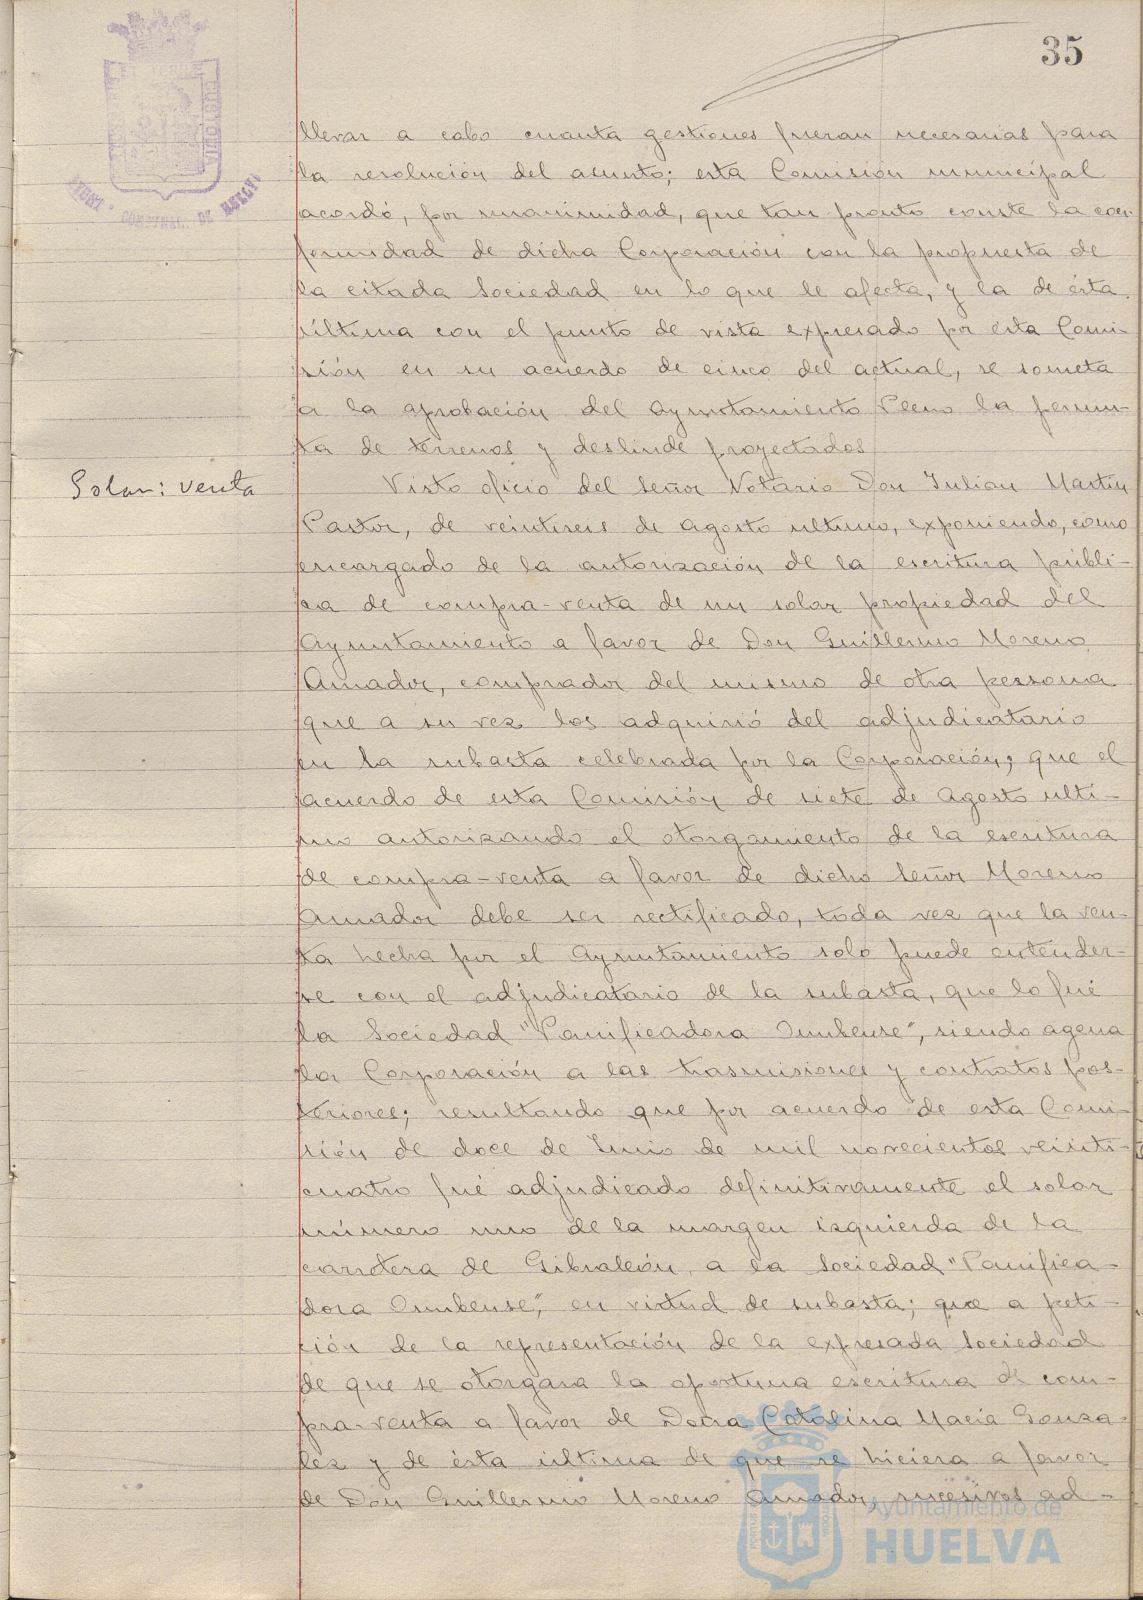 35
llevar a cabo cuanta gestiones fueran necesarias para
la resolución del asunto; esta Comisión municipal
acordó, por unanimidad, que tan pronto conste la con-
formidad de dicha Corporación con la propuesta de
la citada Sociedad en lo que le afecta, y la de ésta
última con el punto de vista expresado por esta Comi-
sión en su acuerdo de cinco del actual, se someta
a la aprobación del Ayuntamiento Pleno la permu-
ta de terrenos y deslinde proyectados
Solar: venta
Visto oficio del Señor Notario Don Julian Martin
Pastor, de veintiseis de Agosto ultimo, exponiendo, como
encargado de la autorización de la escritura públi-
ca de compra-venta de un solar propiedad del
Ayuntamiento a favor de Don Guillermo Moreno
Amador, comprador del mismo de otra persona
que a su vez los adquirió del adjudicatario
en la subasta celebrada por la Corporación; que el
acuerdo de esta Comisión de siete de Agosto ulti-
mo autorizando el otorgamiento de la escritura
de compra-venta a favor de dicho Señor Moreno
Amador debe ser rectificado, toda vez que la ven-
ta hecha por el Ayuntamiento solo puede entender-
se con el adjudicatario de la subasta, que lo fué
la Sociedad "Panificadora Onubense", siendo agena
la Corporación a las trasmisiones y contratos pos-
teriores; resultando que por acuerdo de esta Comi-
sión de doce de Junio de mil novecientos veinti-
cuatro fué adjudicado definitivamente el solar
número uno de la margen izquierda de la
carretera de Gibraleón, a la Sociedad "Panifica-
dora Onubense", en virtud de subasta; que a peti-
ción de la representación de la expresada Sociedad
de que se otorgara la oportuna escritura de com-
pra-venta a favor de Doña Catalina Macia Gonza-
lez y de ésta ultima de que se hiciera a favor
de Don Guillermo Moreno Amador, sucesivos ad-
Ayuntamiento de
HUELVA